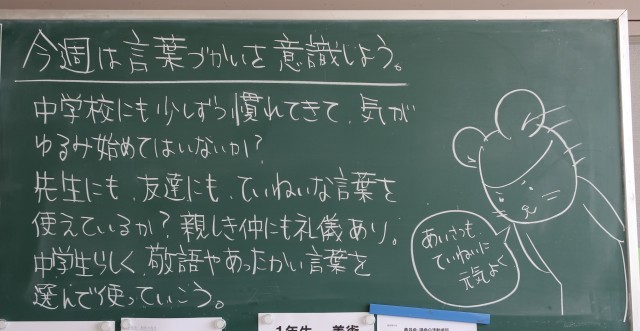 今週は言葉づかいを意識しよう。
中学校にも少しずつ慣れてきて、気が
ゆるみ始めてはいないか？
先生にも、友達にも、ていねいな言葉を
使えているか？親しき仲にも礼儀あり。
中学生らしく、敬語やあったかい言葉を
選んで使っていこう。
あいさつも、
ていねいに
元気よく
1年生 美術